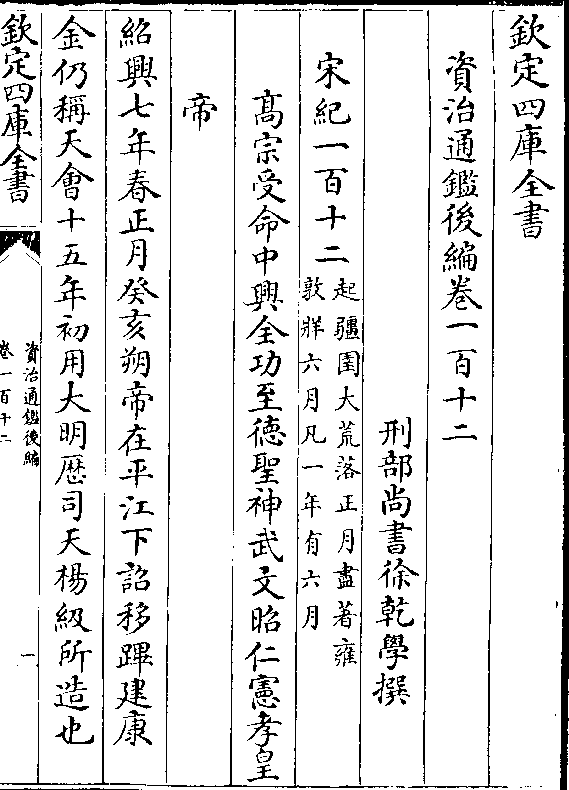 欽定四庫全書
資治通鑑後編卷一百十二
刑部尚書徐乾學撰
宋紀一百十二
起彊圉大荒落正月盡著雍
敦牂六月凡一年有六月
髙宗受命中興全功至德聖神武文昭仁憲孝皇
帝
紹興七年春正月癸亥朔帝在平江下詔移蹕建康
金仍稱天會十五年初用大明厯司天楊級所造也
欽定四庫全書
資治通鑑後編
卷一百十二
一